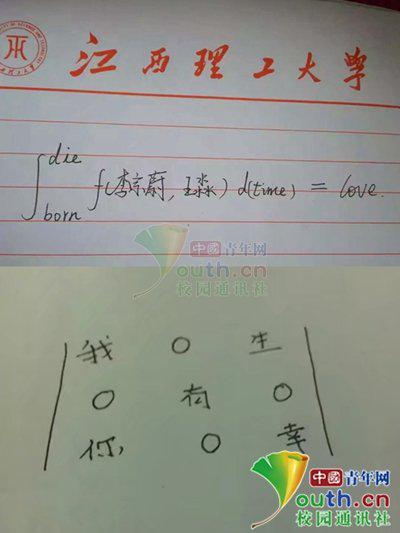 江西理工大学
∫_born^die f(李宗蔚, 王淼) d(time) = love.
中國青年网
outh.cn
校园通讯社
我 0 生
0 有 0
你, 0 幸
中國青年网
outh.cn
校园通讯社